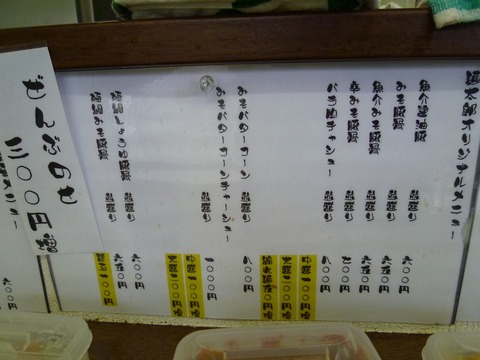 麺太郎オリジナルメニュー
魚介醤油豚 並盛り 六〇〇円
みそ豚骨 並盛り 六五〇円
魚介みそ豚骨 並盛り 六五〇円
辛みそ豚骨 並盛り 七〇〇円
バラ肉チャーシュー 並盛り 八〇〇円
中盛一〇〇円増
大盛二〇〇円増
みそバターコーン 並盛り 八〇〇円
みそバターコーンチャーシュー 並盛り 一〇〇〇円
中盛一〇〇円増
大盛二〇〇円増
しょうゆ豚骨 並盛り 六〇〇円
みそ豚骨 並盛り 六五〇円
ぜんぶのせ
三〇〇円増
メニュー
六〇〇円